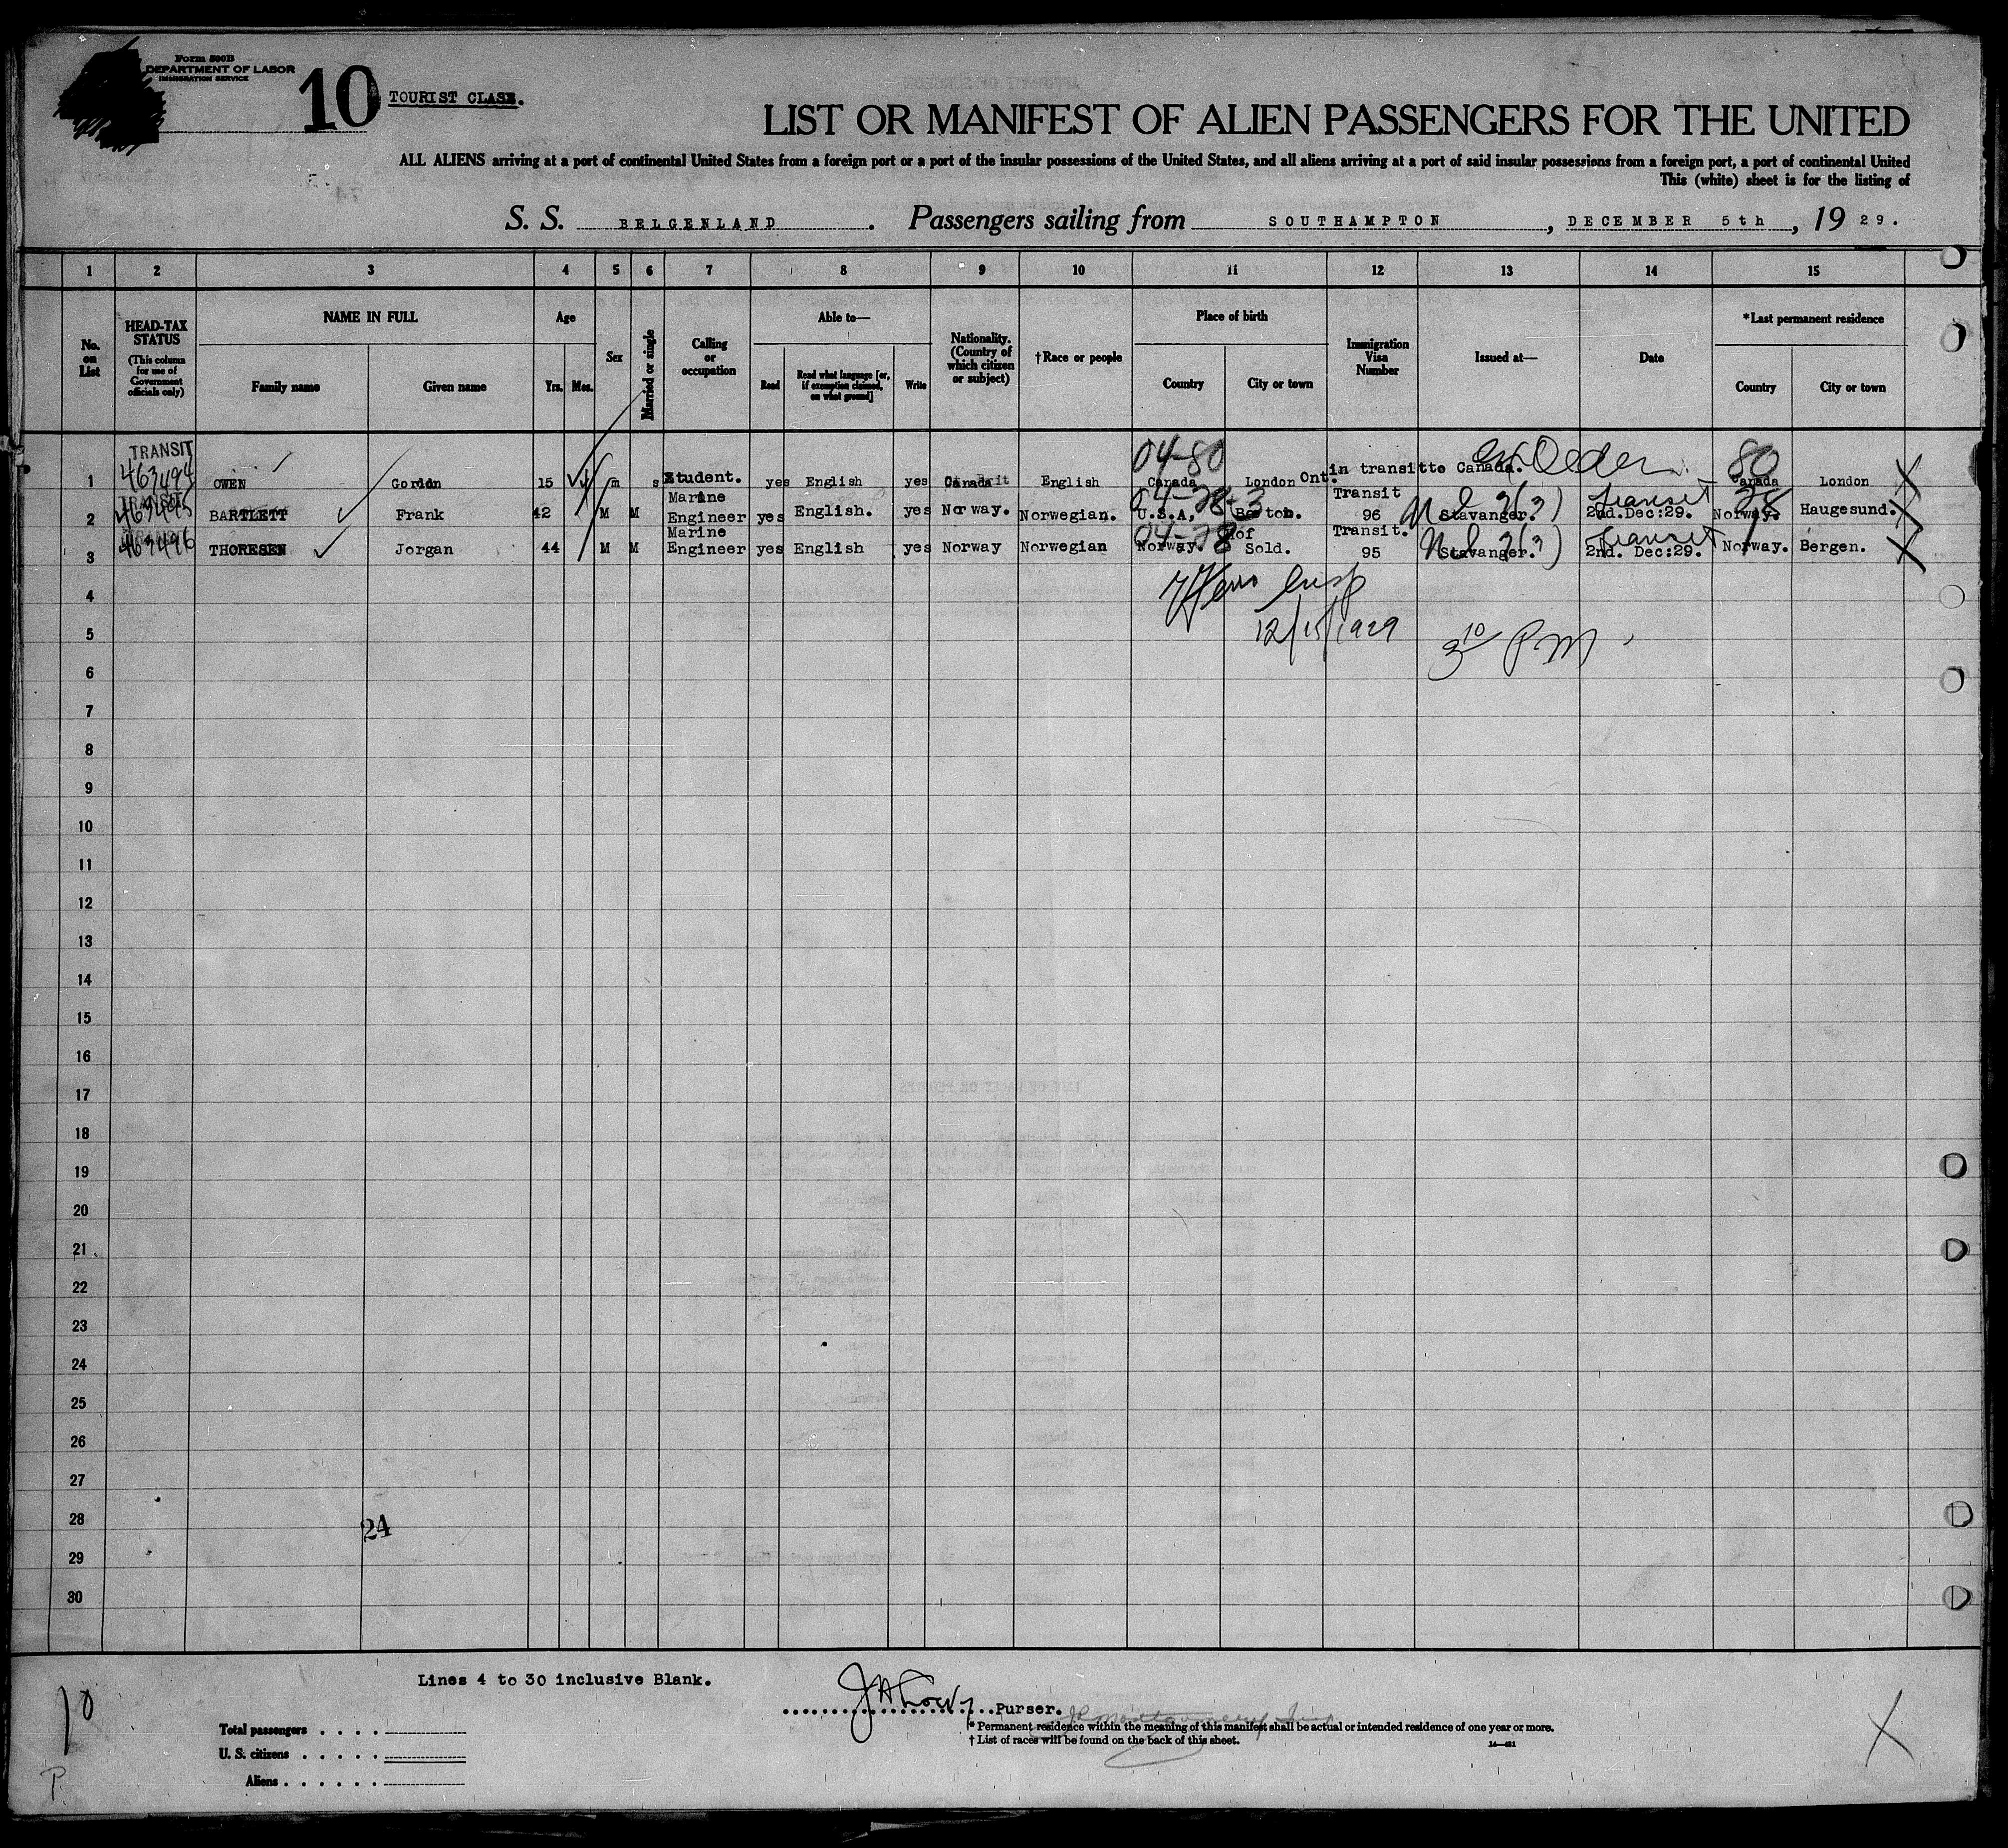 Form 500B
DEPARTMENT OF LABOR
IMMIGRATION SERVICE
10
TOURIST CLASS.
LIST OR MANIFEST OF ALIEN PASSENGERS FOR THE UNITED
ALL ALIENS arriving at a port of continental United States from a foreign port or a port of the insular possessions of the United States, and all aliens arriving at a port of said insular possessions from a foreign port, a port of continental United
This (white) sheet is for the listing of
S. S. BELGENLAND . Passengers sailing from SOUTHAMPTON , DECEMBER 5th , 19 29.
1 2 3 4 5 6 7 8 9 10 11 12 13 14 15
No. on List
HEAD-TAX STATUS (This column for use of Government officials only)
NAME IN FULL
Family name Given name
Age
Yrs. Mos.
Sex
Married or single
Calling or occupation
Able to—
Read Read what language [or, if exemption claimed, on what ground] Write
Nationality. (Country of which citizen or subject)
†Race or people
Place of birth
Country City or town
Immigration Visa Number
Issued at—
Date
*Last permanent residence
Country City or town
TRANSIT 463494 04-80 80
1 OWEN Gordon 15 m s Student. yes English yes Canada English Canada London Ont. in transit to Canada. Canada London
TRANSIT 463495 04-28-3 Transit 28
2 BARTLETT Frank 42 M M Marine Engineer yes English. yes Norway. Norwegian. U.S.A, Boston. Transit 96 Stavanger. 2nd.Dec:29. Norway. Haugesund.
463496 04-28 Transit
3 THORESEN Jorgan 44 M M Marine Engineer yes English yes Norway Norwegian Norway. Hof Sold. Transit. 95 Stavanger. 2nd. Dec:29. Norway. Bergen.
4
insp
5 12/15/1929 3 10 PM
6
7
8
9
10
11
12
13
14
15
16
17
18
19
20
21
22
23
24
25
26
27
28 24
29
30
Lines 4 to 30 inclusive Blank.
10
Purser.
Total passengers . . . .
U. S. citizens . . . . .
Aliens . . . . . .
* Permanent residence within the meaning of this manifest shall be actual or intended residence of one year or more.
† List of races will be found on the back of this sheet.
P